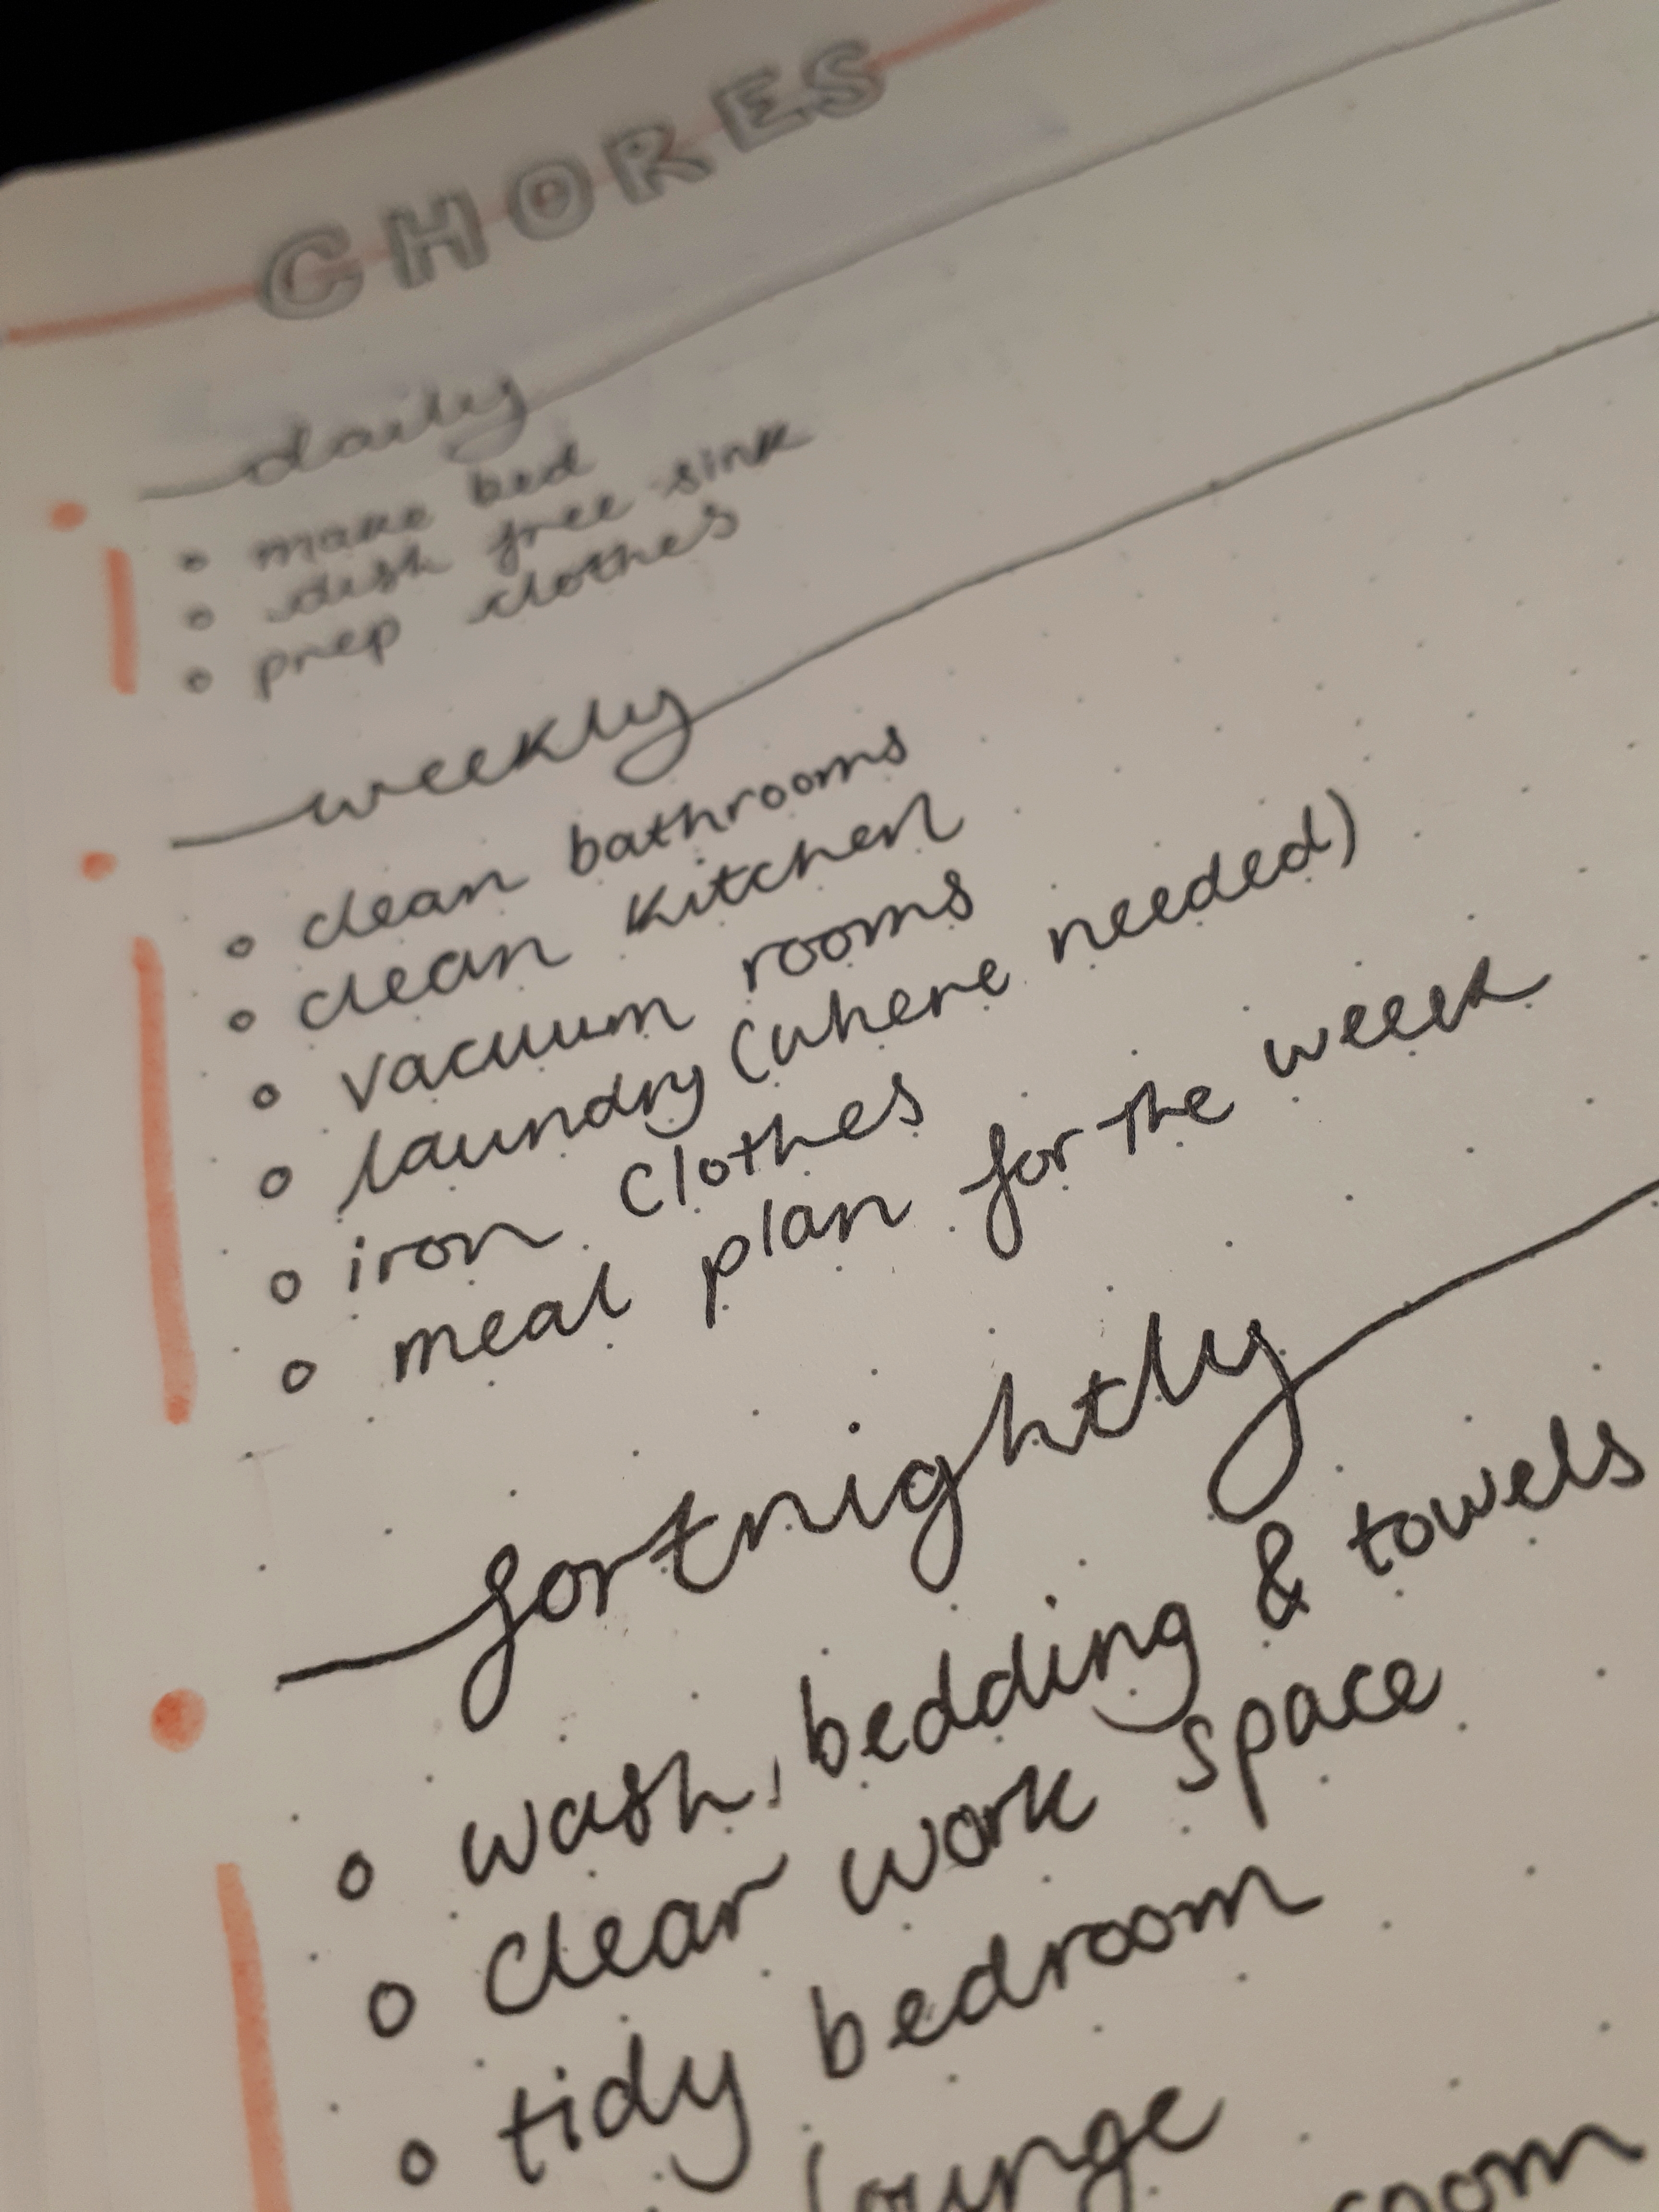 CHORES
daily
• make bed
• dish free sink
• prep clothes
weekly
• clean bathrooms
• clean kitchen
• vacuum rooms
• laundry (where needed)
• iron clothes
• meal plan for the week
fortnightly
• wash, bedding & towels
• clear work space
• tidy bedroom
lounge